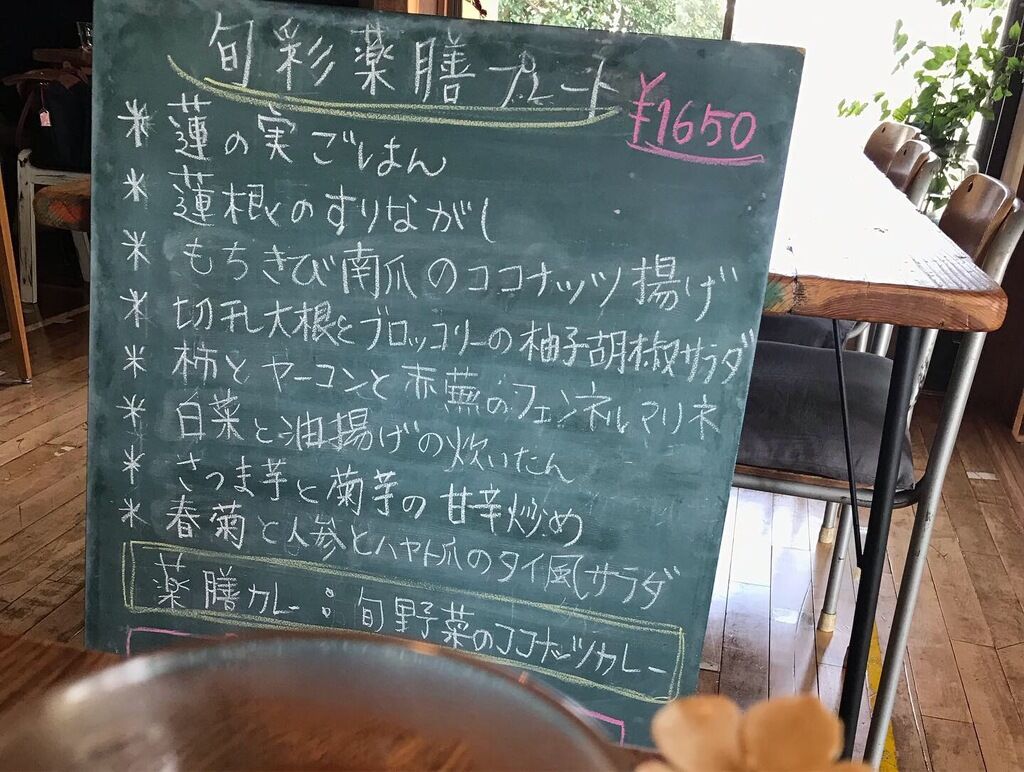 旬彩薬膳プレート ¥1650
* 蓮の実ごはん
* 蓮根のすりながし
* もちきび南瓜のココナッツ揚げ
* 切干大根とブロッコリーの柚子胡椒サラダ
* 柿とヤーコンと赤蕪のフェンネルマリネ
* 白菜と油揚げの炊いたん
* さつま芋と菊芋の甘辛炒め
* 春菊と人参とハヤト瓜のタイ風サラダ
薬膳カレー:旬野菜のココナッツカレー